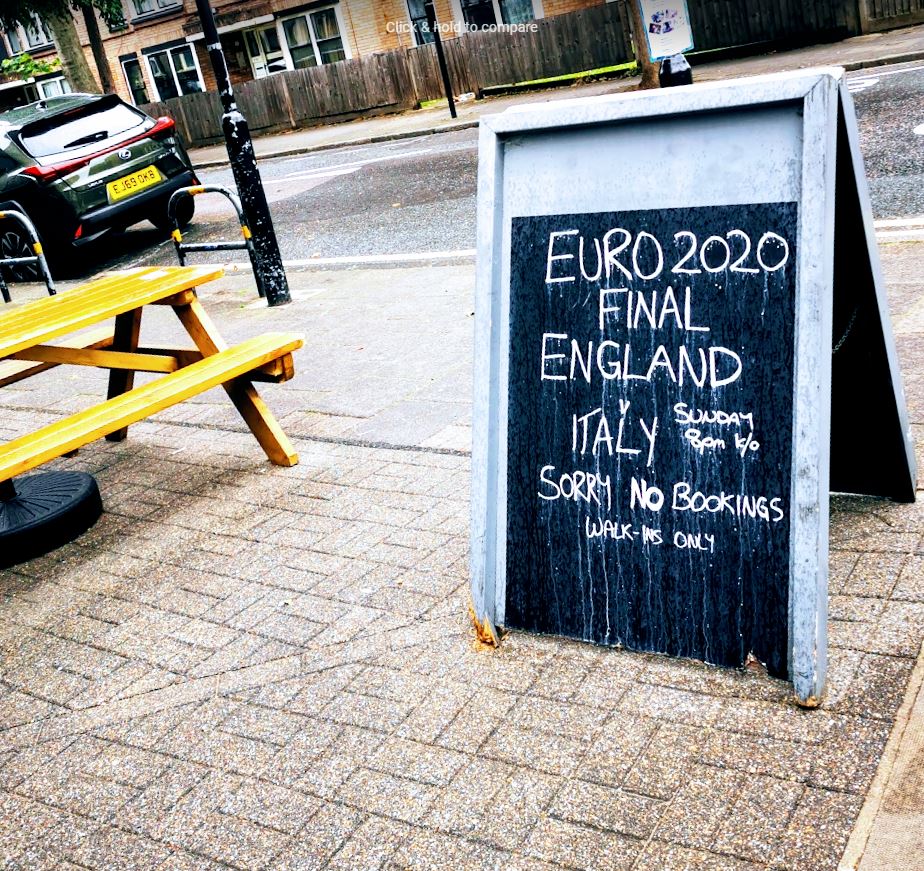 Click & hold to compare
EJ69 OKB
EURO 2020
FINAL
ENGLAND
V
ITALY
SUNDAY
8pm k/o
SORRY NO BOOKINGS
WALK-INS ONLY